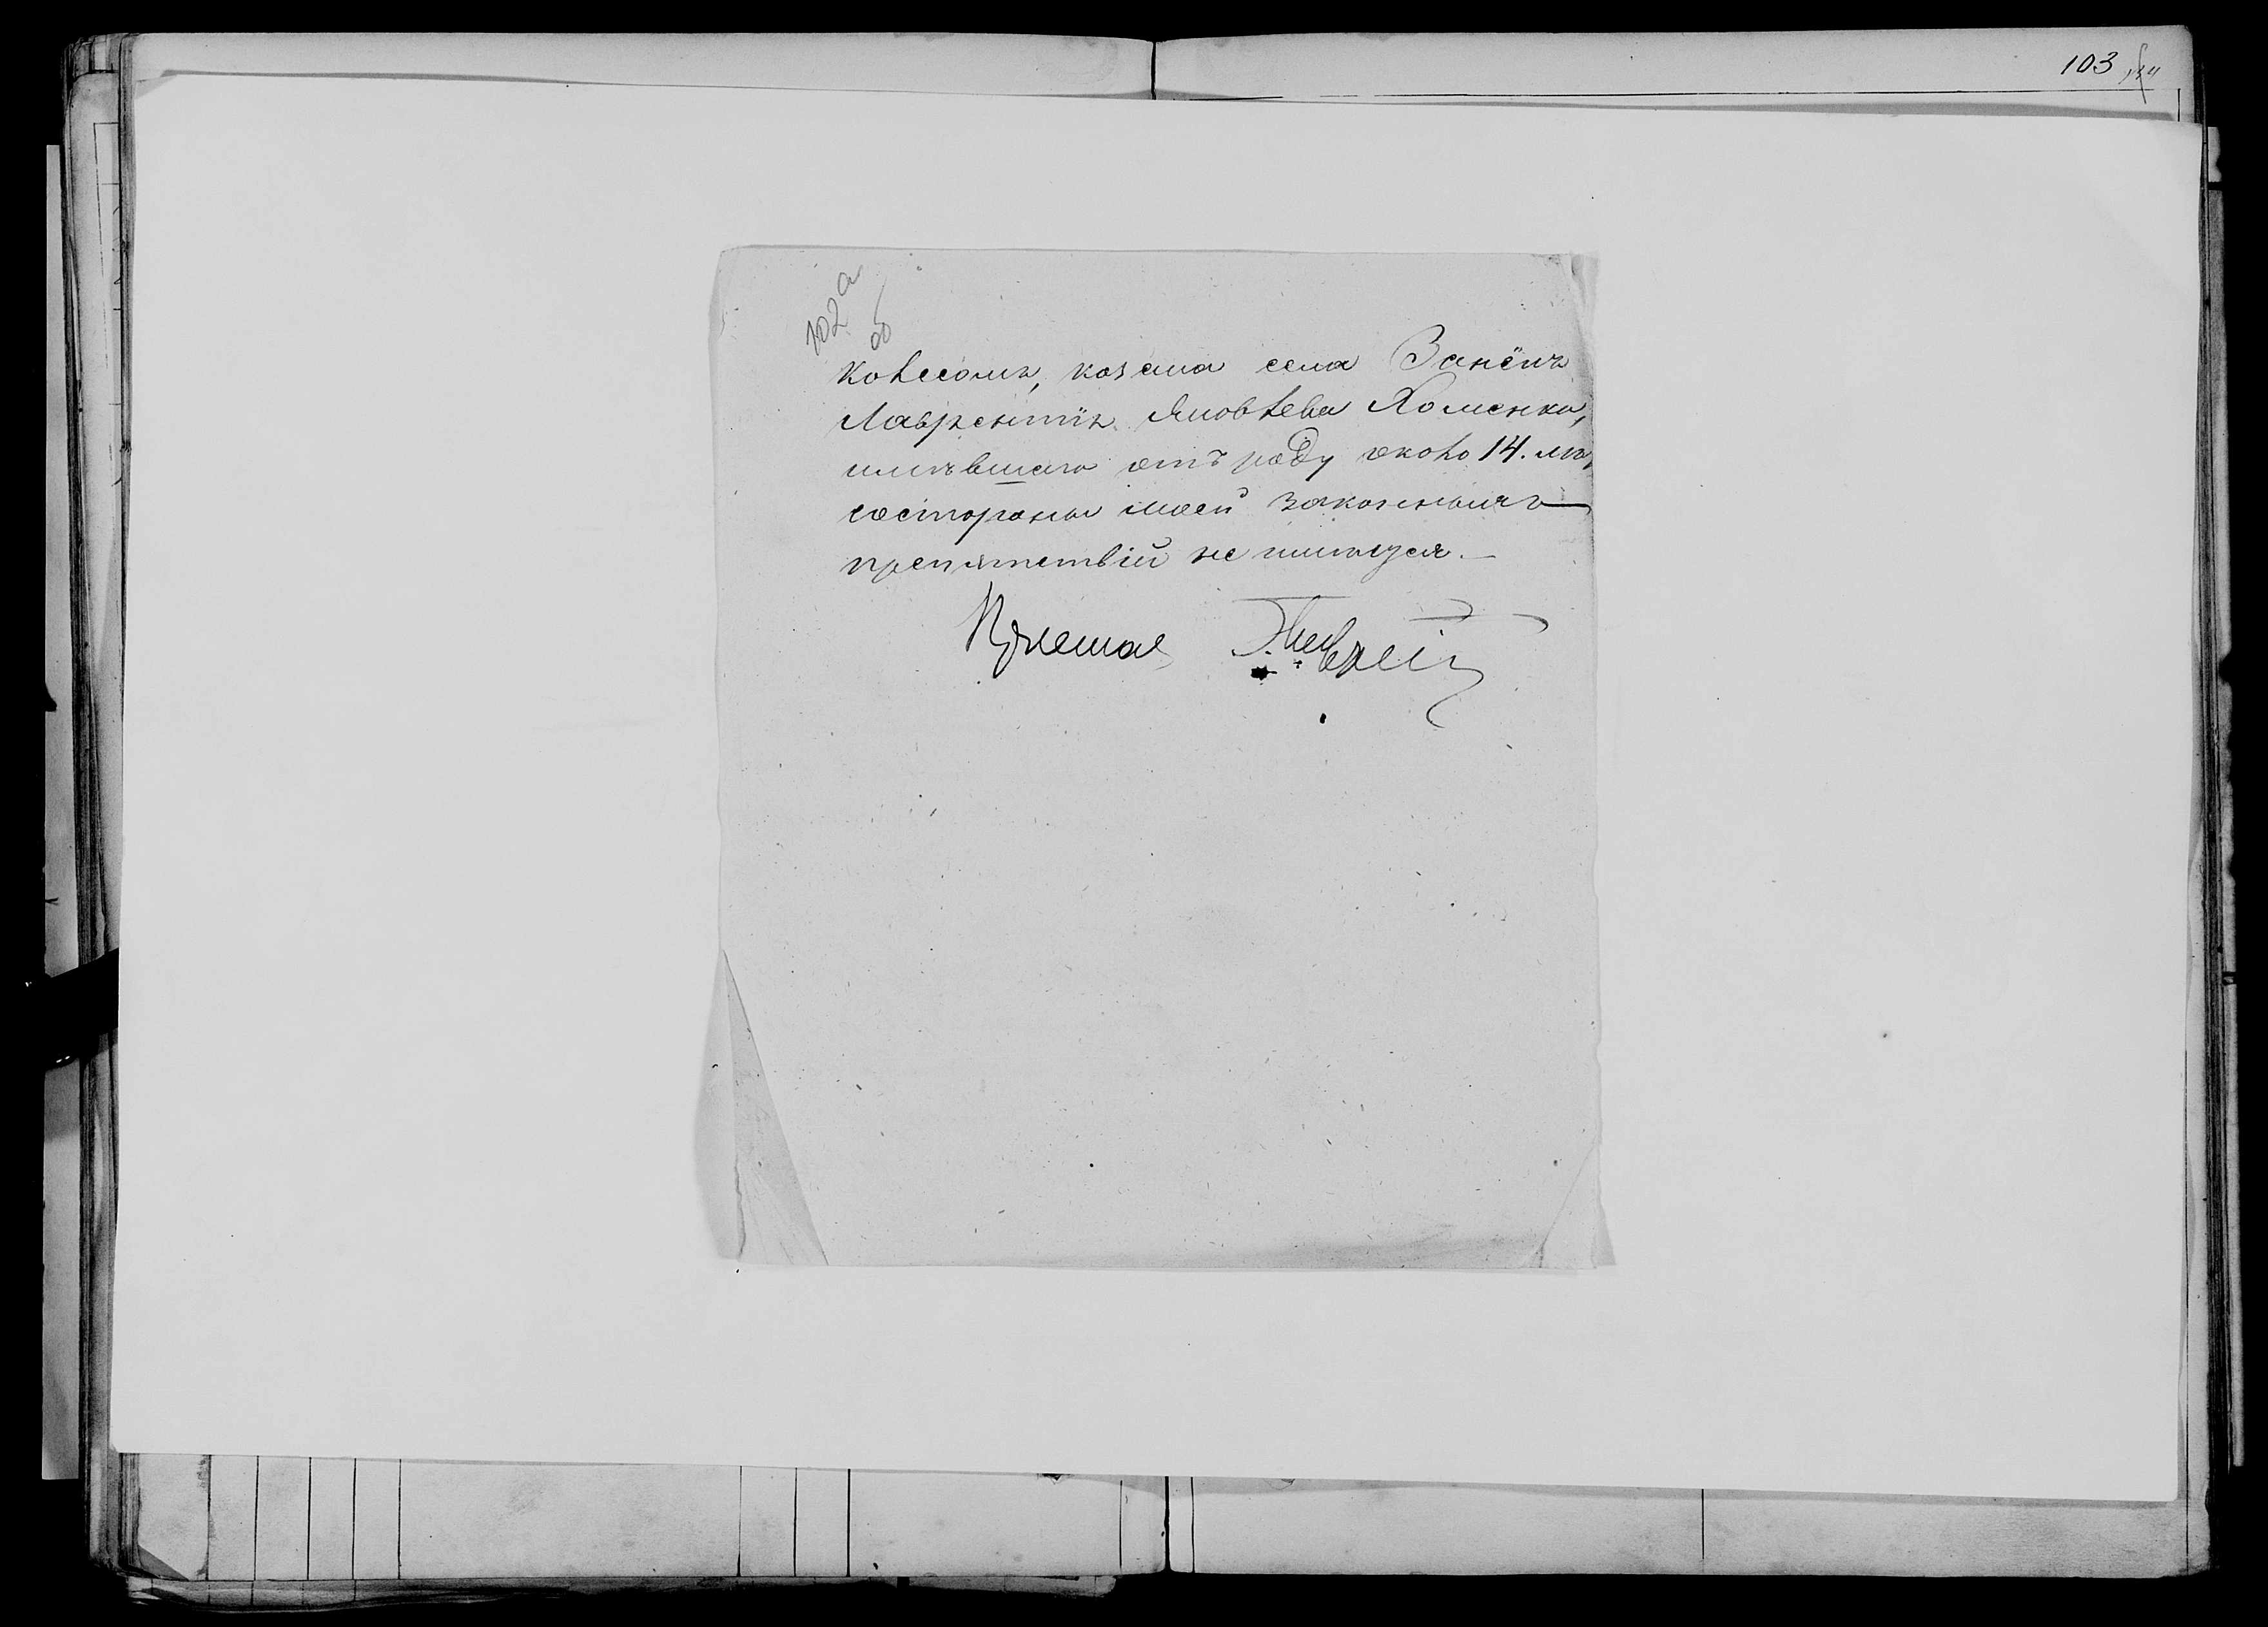 103
102а
об
колесомъ, козака села Занекъ
Лаврентія Яковлева Хоменка,
имѣвшаго отъ роду около 14. лѣ
состороны моей законныхъ
препятствій не имѣется.—